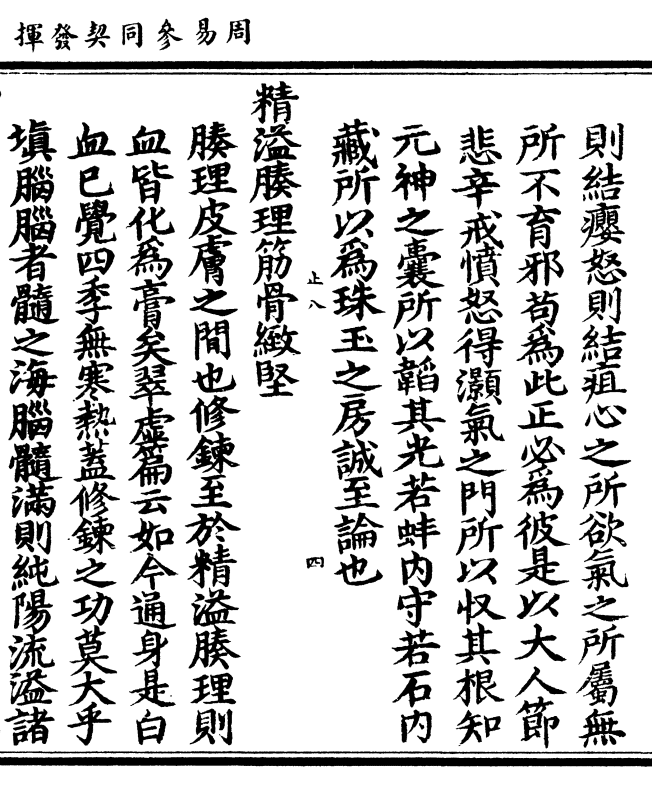 周易參同契發揮
則結癭怒則結疽心之所欲氣之所屬無
所不育邪茍爲此正必爲彼是以大人節
悲辛戒憤怒得灝氣之門所以収其根知
元神之囊所以韜其光若蚌内守若石内
藏所以爲珠玉之房誠至論也
上八
四
精溢腠理筋骨緻堅
腠理皮膚之間也修鍊至於精溢腠理則
血皆化爲膏矣翠虛篇云如今通身是白
血巳覺四季無寒熱蓋修鍊之功莫大乎
塡腦腦者髓之海腦髓滿則純陽流溢諸